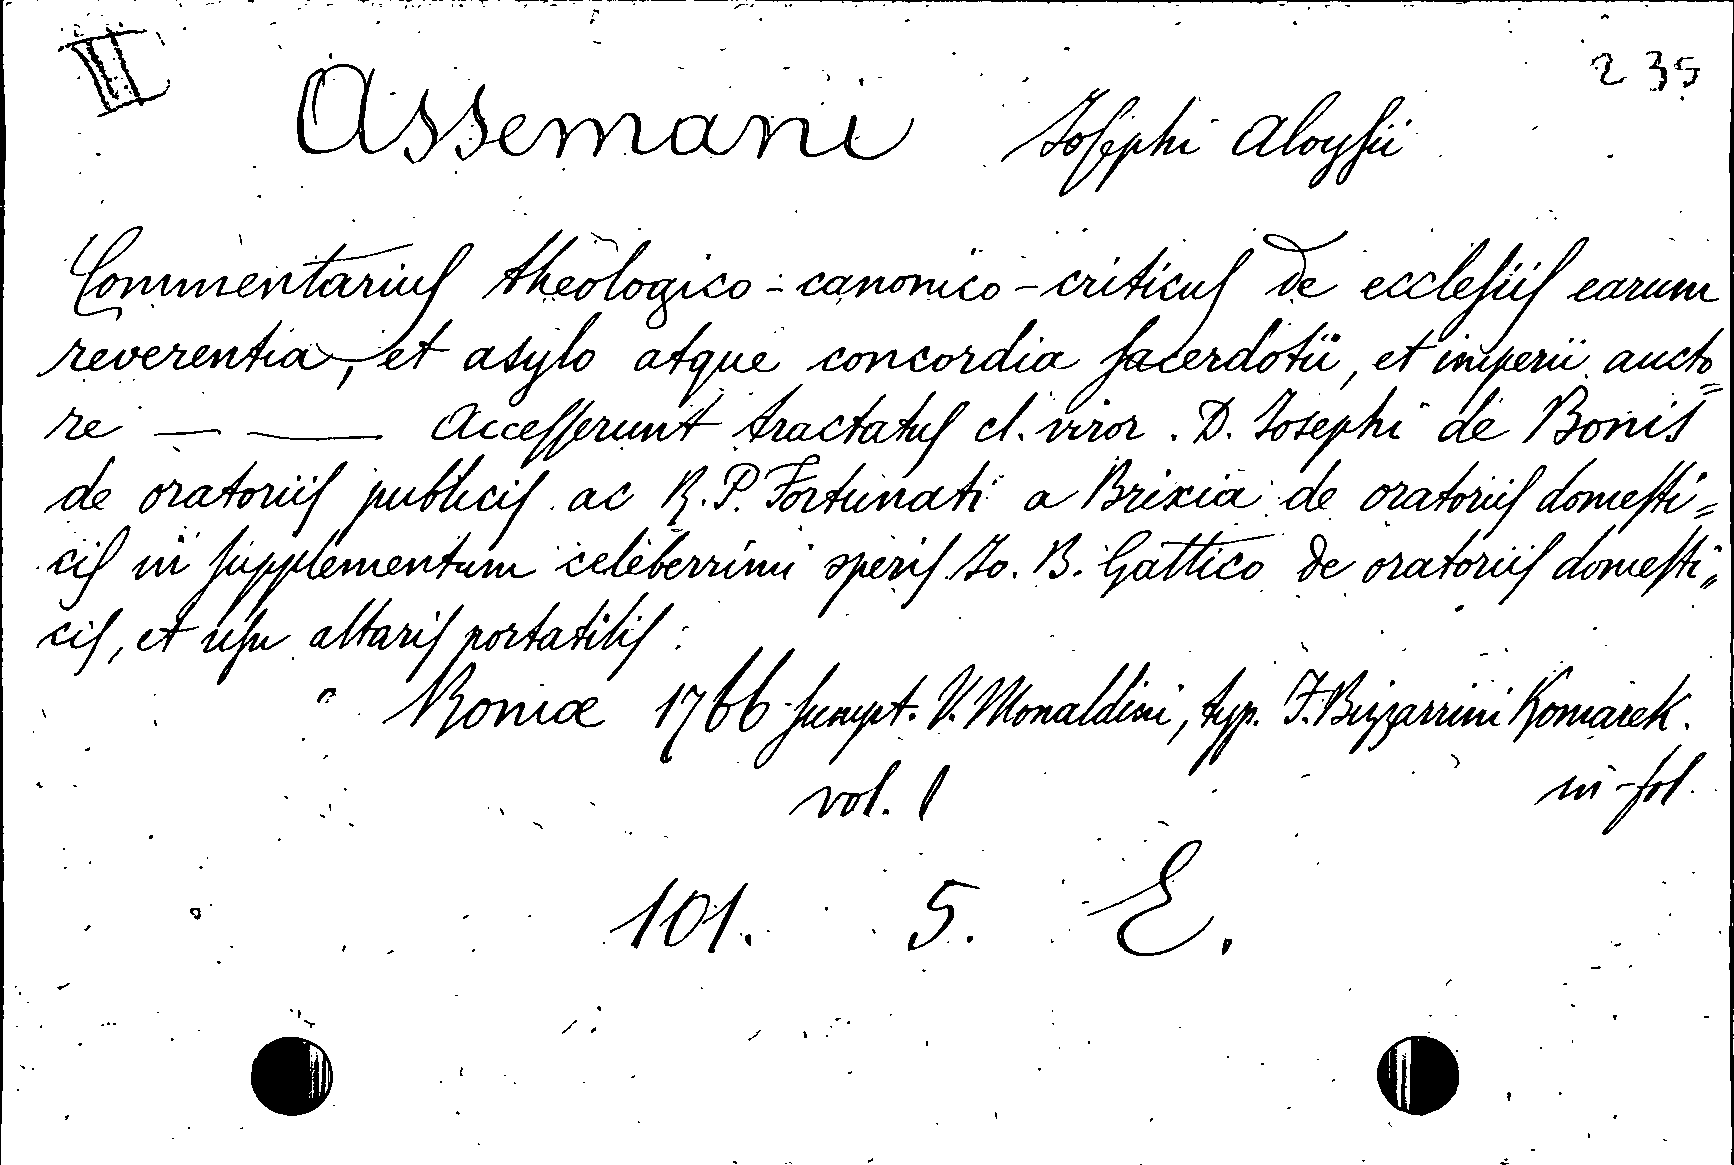 II
235
Assemani Josephi Aloysii
Commentarius theologico-canonico-criticus de ecclesiis earum
reverentia, et asylo atque concordia sacerdotii, et imperii aucto=
re — —— Accesserunt tractatus cl. viror. D. Josephi de Bonis
de oratoriis publicis ac R. P. Fortunati a Brixia de oratoriis domesti=
cis in supplementum celeberrimi operis Jo. B. Gattico de oratoriis domesti=
cis, et usu altaris portatilis:
Romae 1766 sumpt. V. Monaldini, typ. F. Bizzarrini Komarek.
vol. 1 in-fol.
101. 5. E.